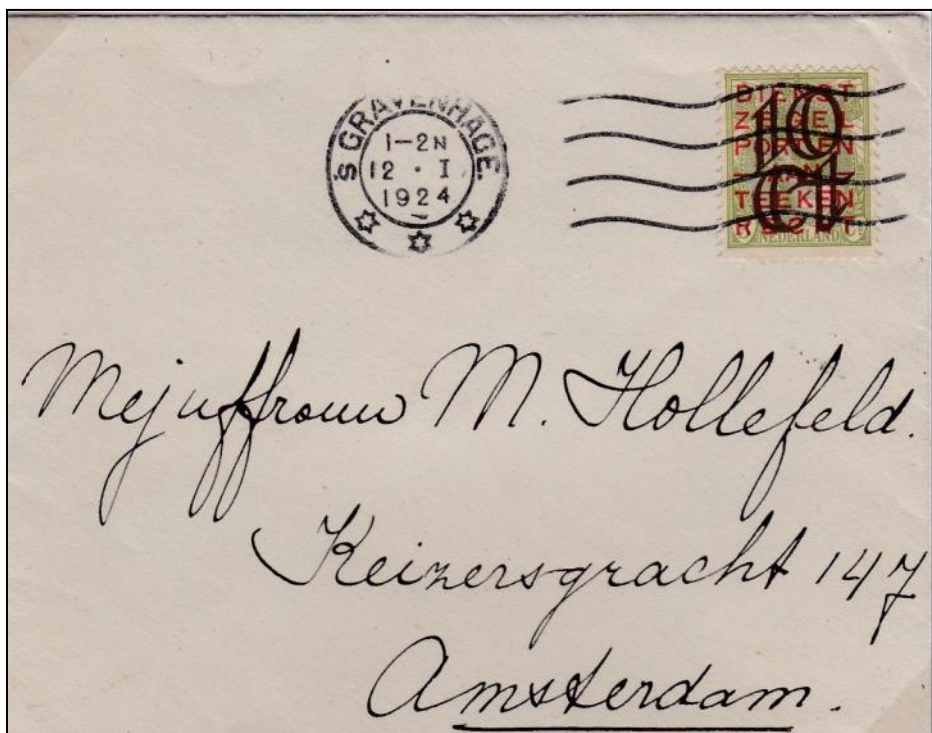 'S GRAVENHAGE.
1-2N
12 · I
1924
DIENST
ZEGEL
PORT EN
AAN
TEEKEN
RECHT
10
ct
NEDERLAND
Mejuffrouw M. Hollefeld.
Keizersgracht 147
Amsterdam.